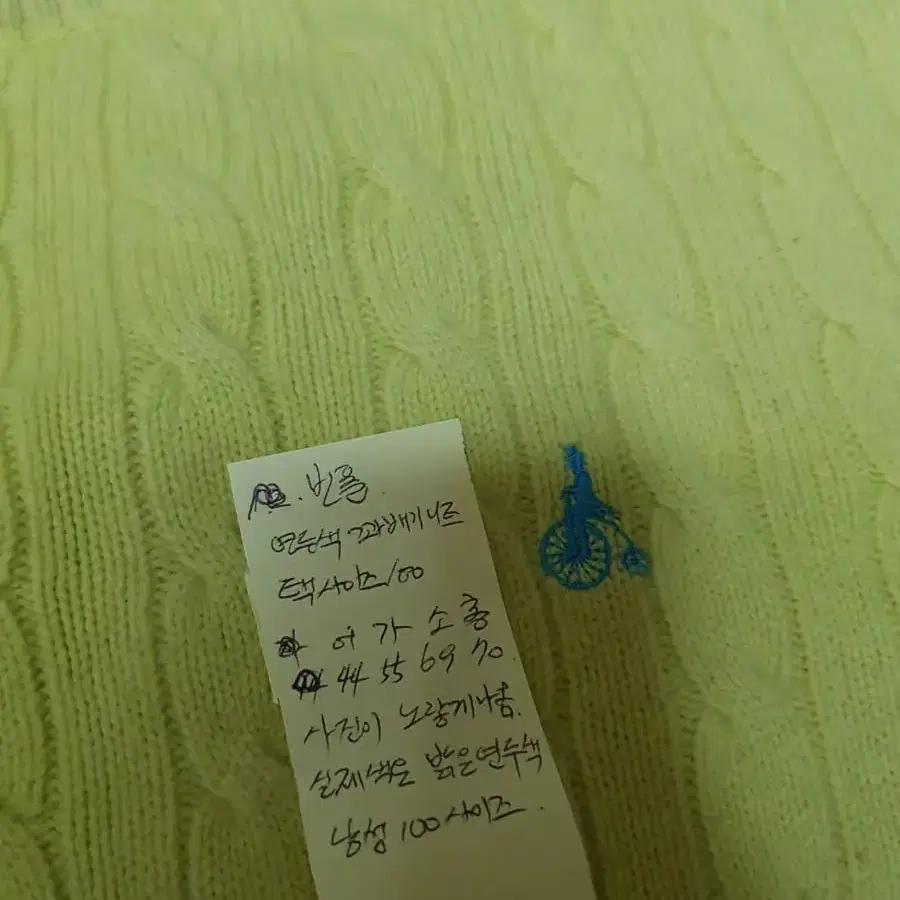 . 빈폴.
연두색 꽈배기니트
택사이즈100
어 가 소 총
44 55 69 70.
사진이 노랗게나옴.
실제색은 밝은연두색
남성 100사이즈.